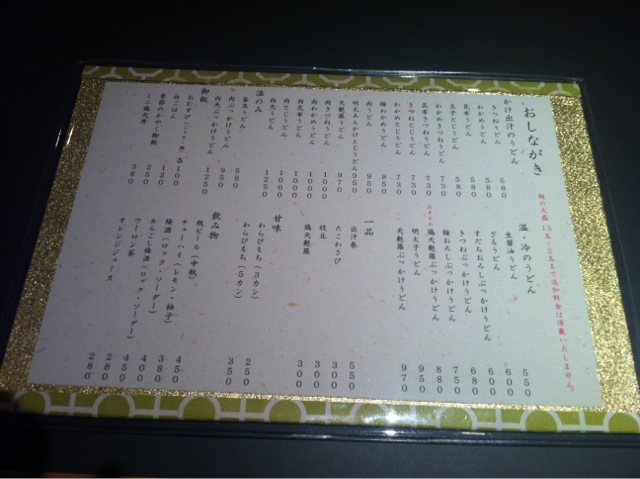 おしながき
麺の大盛
追加料金は頂戴いたしません。
かけ出汁のうどん
きつねうどん 580
わかめうどん 580
昆布うどん 580
玉子とじうどん 580
わかめきつねうどん 730
昆布きつねうどん 730
きつねとじうどん 730
わかめとじうどん 730
梅わかめうどん 850
肉うどん 850
明太あんかけとじうどん 950
天麩羅うどん 970
肉きつねうどん 1000
肉わかめうどん 1000
肉昆布うどん 1000
肉とじうどん 1000
肉天うどん 1250
温のみ
釜玉うどん 580
肉ぶっかけうどん 950
肉天ぶっかけうどん 1250
御飯
おむすび 各100
白ごはん 120
季節のかやく御飯 250
ミニ鶏天丼 380
温・冷のうどん
生醤油うどん 550
ざるうどん 600
すだちおろしぶっかけうどん 600
きつねぶっかけうどん 680
梅おろしぶっかけうどん 750
鶏天麩羅ぶっかけうどん 880
明太子うどん 950
天麩羅ぶっかけうどん 970
一品
出汁巻 550
たこわさび 300
枝豆 300
鶏天麩羅 300
甘味
わらびもち(3カン) 250
わらびもち(5カン) 350
飲み物
瓶ビール(中瓶) 450
チューハイ(レモン・柚子) 380
梅酒(ロック・ソーダー) 400
あらごし梅酒(ロック・ソーダー) 450
ウーロン茶 280
オレンジジュース 280